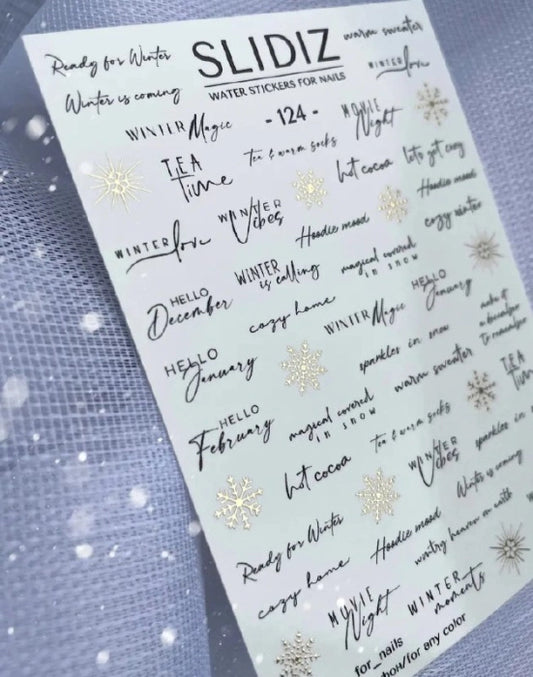 Ready for Winter
SLIDIZ
warm sweater
Winter is coming
WATER STICKERS FOR NAILS
WINTER love
WINTER Magic
- 124 -
MOVIE
Night
TEA
Time
Tea & warm socks
hot cocoa
lets get cozy
Hoodie mood
WINTER love
WINTER
Vibes
Hoodie mood
cozy winter
HELLO
December
WINTER
is calling
magical covered
in snow
HELLO
January
cozy home
WINTER Magic
make it
a december
to remember
HELLO
January
sparkles in snow
warm sweater
TEA
Time
HELLO
February
magical covered
in snow
Tea & warm socks
hot cocoa
WINTER
Vibes
sparkles in
Winter is coming
Ready for Winter
Hoodie mood
heaven on earth
cozy home
MOVIE
Night
WINTER
moments
for_nails
for any color